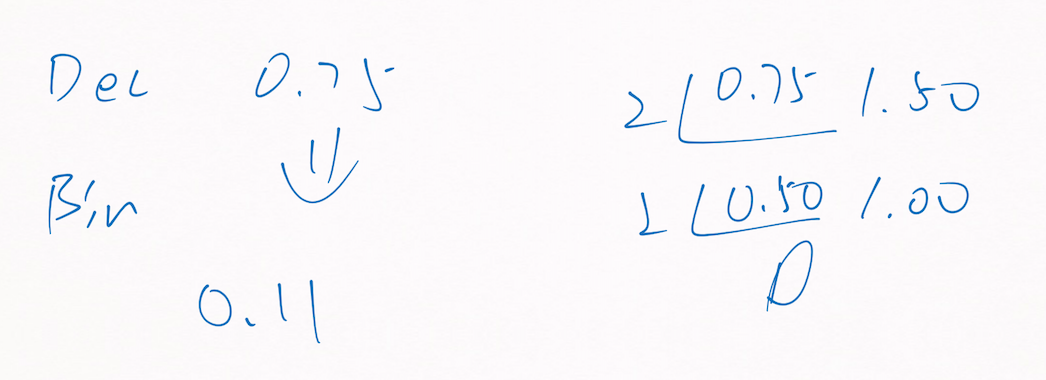 Dec 0.75
Bin
0.11
2 0.75 1.50
2 0.50 1.00
0